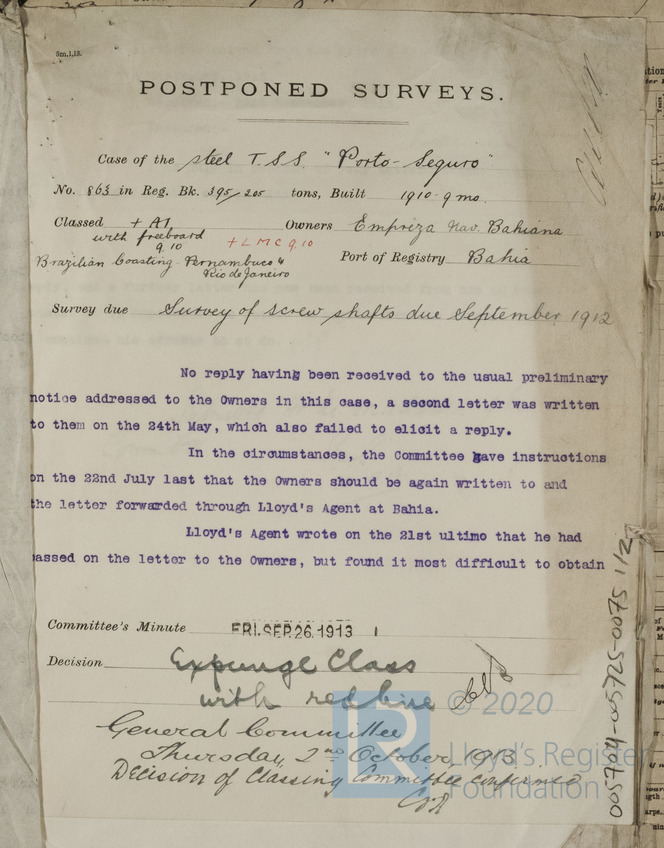 Sm.1,13.
POSTPONED SURVEYS.
Case of the steel T.S.S. "Porto-Seguro"
No. 863 in Reg. Bk. 395/205 tons, Built 1910-9 mo.
Classed + A1 Owners Empreza Nav. Bahiana
with freeboard
9.10 + L M C 9.10
Brazilian Coasting - Pernambuco &
Rio de Janeiro
Port of Registry Bahia
Survey due Survey of screw shafts due September 1912
No reply having been received to the usual preliminary
notice addressed to the Owners in this case, a second letter was written
to them on the 24th May, which also failed to elicit a reply.
In the circumstances, the Committee gave instructions
on the 22nd July last that the Owners should be again written to and
the letter forwarded through Lloyd's Agent at Bahia.
Lloyd's Agent wrote on the 21st ultimo that he had
passed on the letter to the Owners, but found it most difficult to obtain
Committee's Minute FRI. SEP. 26. 1913
Decision Expunge Class
with red line
General Committee
Thursday, 2nd October, 1913.
Decision of Classing Committee confirmed
© 2020
Lloyd's Register
Foundation